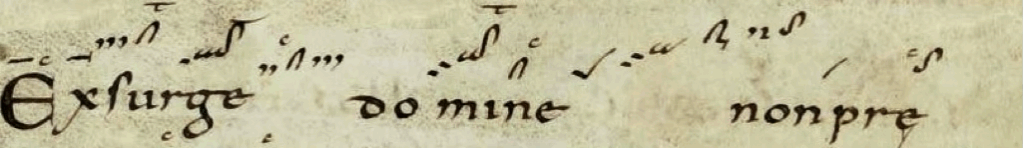 Exsurge do mine non prę